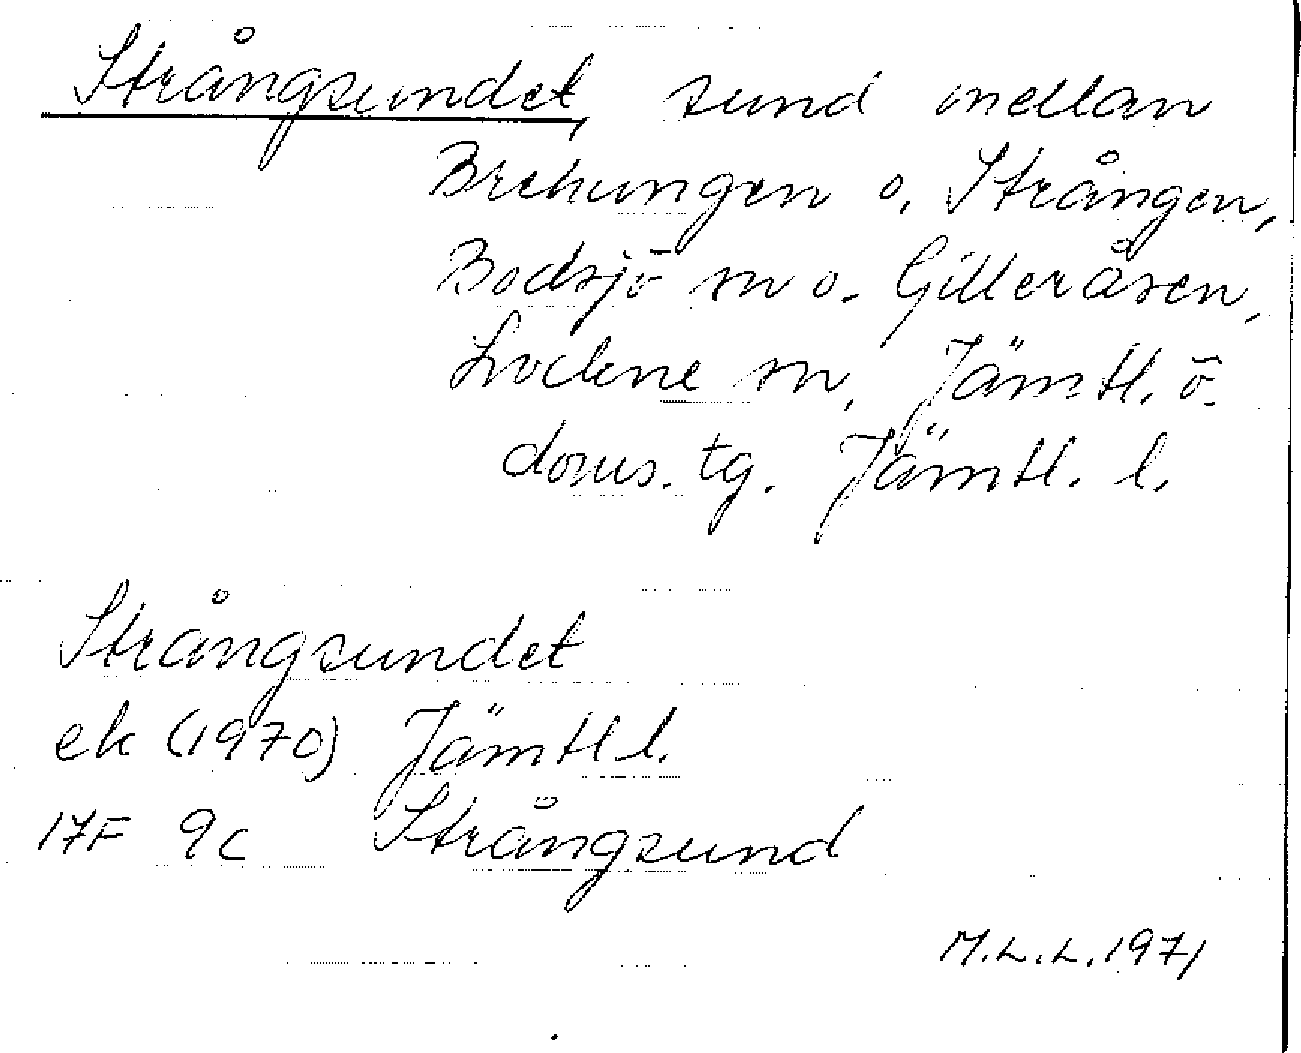 Strångsundet, sund mellan
Brehungen o. Strången,
Bodsjö sn o. Gilleråsen,
Lockne sn, Jämtl. ö.
doms. tg. Jämtl. l.
Strångsundet
ek (1970) Jämtl l.
17F 9c Strångsund
M.L.L. 1971